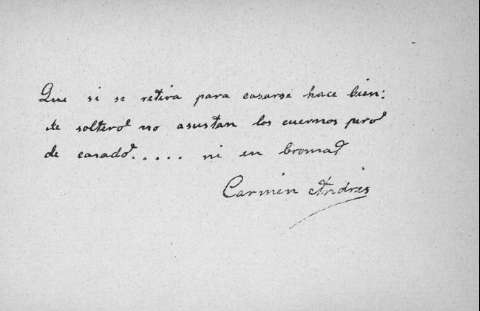 Que si se retira para casarse hace bien:
de soltero no asustan los cuernos pero
de casado..... ni en broma
Carmen Andrés